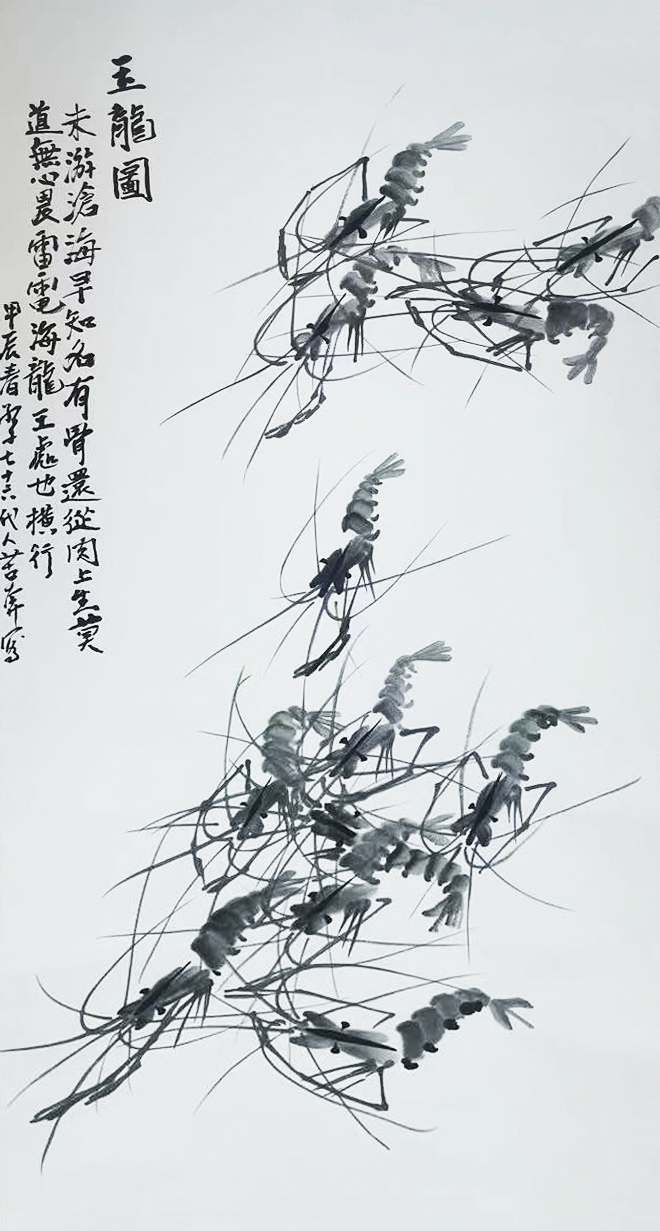 玉龍圖
未游滄海早知名有骨還從肉上生莫
道無心畏雷電海龍王處也橫行
甲辰春 七十六代人苦奔寫